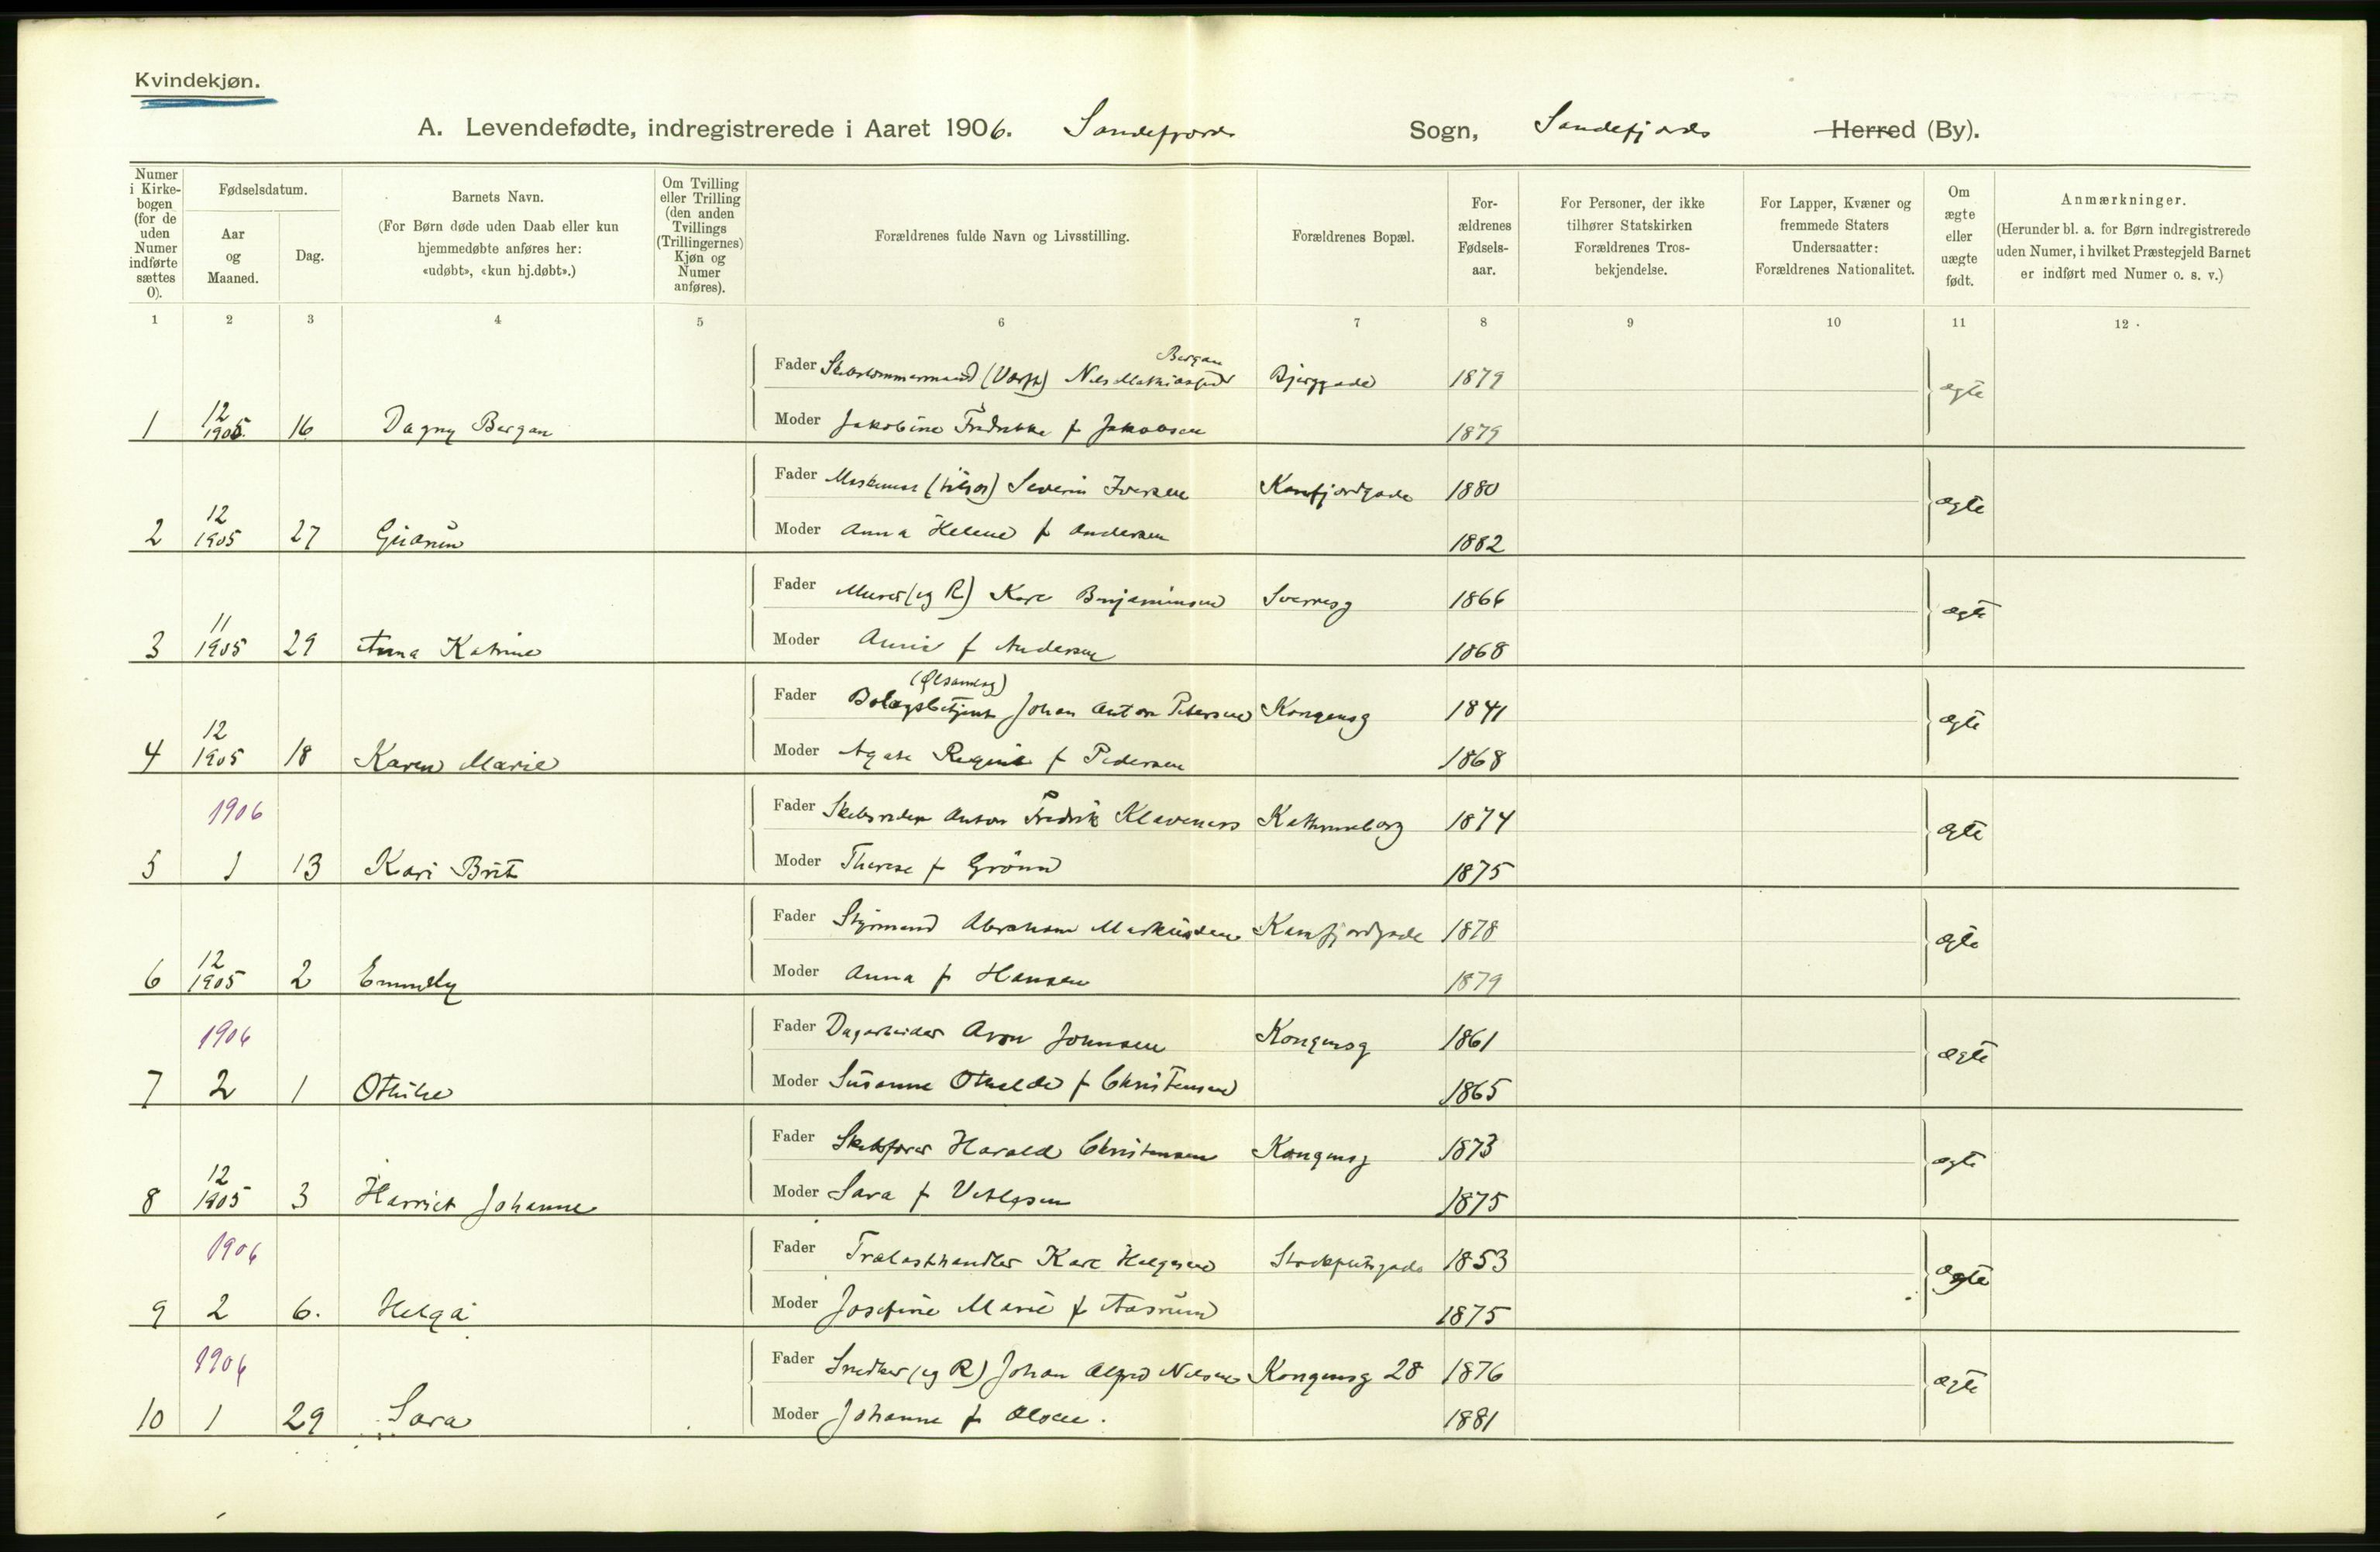 Kvindekjøn.
A. Levendefødte, indregistrerede i Aaret 1906. Sandefjords Sogn, Sandefjords Herred (By).
Numer i Kirke-bogen (for de uden Numer indførte sættes 0).
Fødselsdatum.
Aar og Maaned.
Dag.
Barnets Navn.
(For Børn døde uden Daab eller kun hjemmedøbte anføres her: «udøbt», «kun hj.døbt».)
Om Tvilling eller Trilling (den anden Tvillings (Trillingernes) Kjøn og Numer anføres).
Forældrenes fulde Navn og Livsstilling.
Forældrenes Bopæl.
For-ældrenes Fødsels-aar.
For Personer, der ikke tilhører Statskirken Forældrenes Tros-bekjendelse.
For Lapper, Kvæner og fremmede Staters Undersaatter: Forældrenes Nationalitet.
Om ægte eller uægte født.
Anmærkninger.
(Herunder bl. a. for Børn indregistrerede uden Numer, i hvilket Præstegjeld Barnet er indført med Numer o. s. v.)
1 2 3 4 5 6 7 8 9 10 11 12
Bergan
Fader Skibstømmermand (Værft) Nils Mathiassen Bjerggade 1879 ægte
1 12 1905. 16 Dagny Bergan Moder Jakobine Fredrikke f Jakobsen 1879
Fader Severin Iversen Kamfjordgade 1880 ægte
2 12 1905 27 Gudrun Moder Anna Helene f Andersen 1882
Fader Murer (eg R) Karl Benjaminsen Sverresg 1866 ægte
3 11 1905 29 Anna Katrine Moder Annie f Andersen 1868
(Ølsamlag)
Fader Bolagsbetjent Johan Anton Petersen Kongensg 1841 ægte
4 12 1905 18 Karen Marie Moder Agate Regine f Pedersen 1868
1906 Fader Skibsreder Anton Fredrik Klaveness Kathrineborg 1874 ægte
5 1 13 Kari Brit Moder Therese f Grønn 1875
Fader Styrmand Abraham Markussen Kamfjordgade 1878 ægte
6 12 1905 2 Emmely Moder Anna f Hansen 1879
1906 Fader Dagarbeider Aron Johnsen Kongensg 1861 ægte
7 2 1 Othilie Moder Susanne Othelde f Christensen 1865
Fader Skibsfører Harald Christensen Kongensg 1873 ægte
8 12 1905 3 Harriet Johanne Moder Sara f 1875
1906 Fader Trælasthandler Karl Helgesen 1853 ægte
9 2 6. Helga Moder Josefine Marie f Aasrum 1875
1906 Fader Snedker (eg R) Johan Alfred Nilsen Kongensg 28 1876 ægte
10 1 29 Sara Moder Johanne f Olsen. 1881